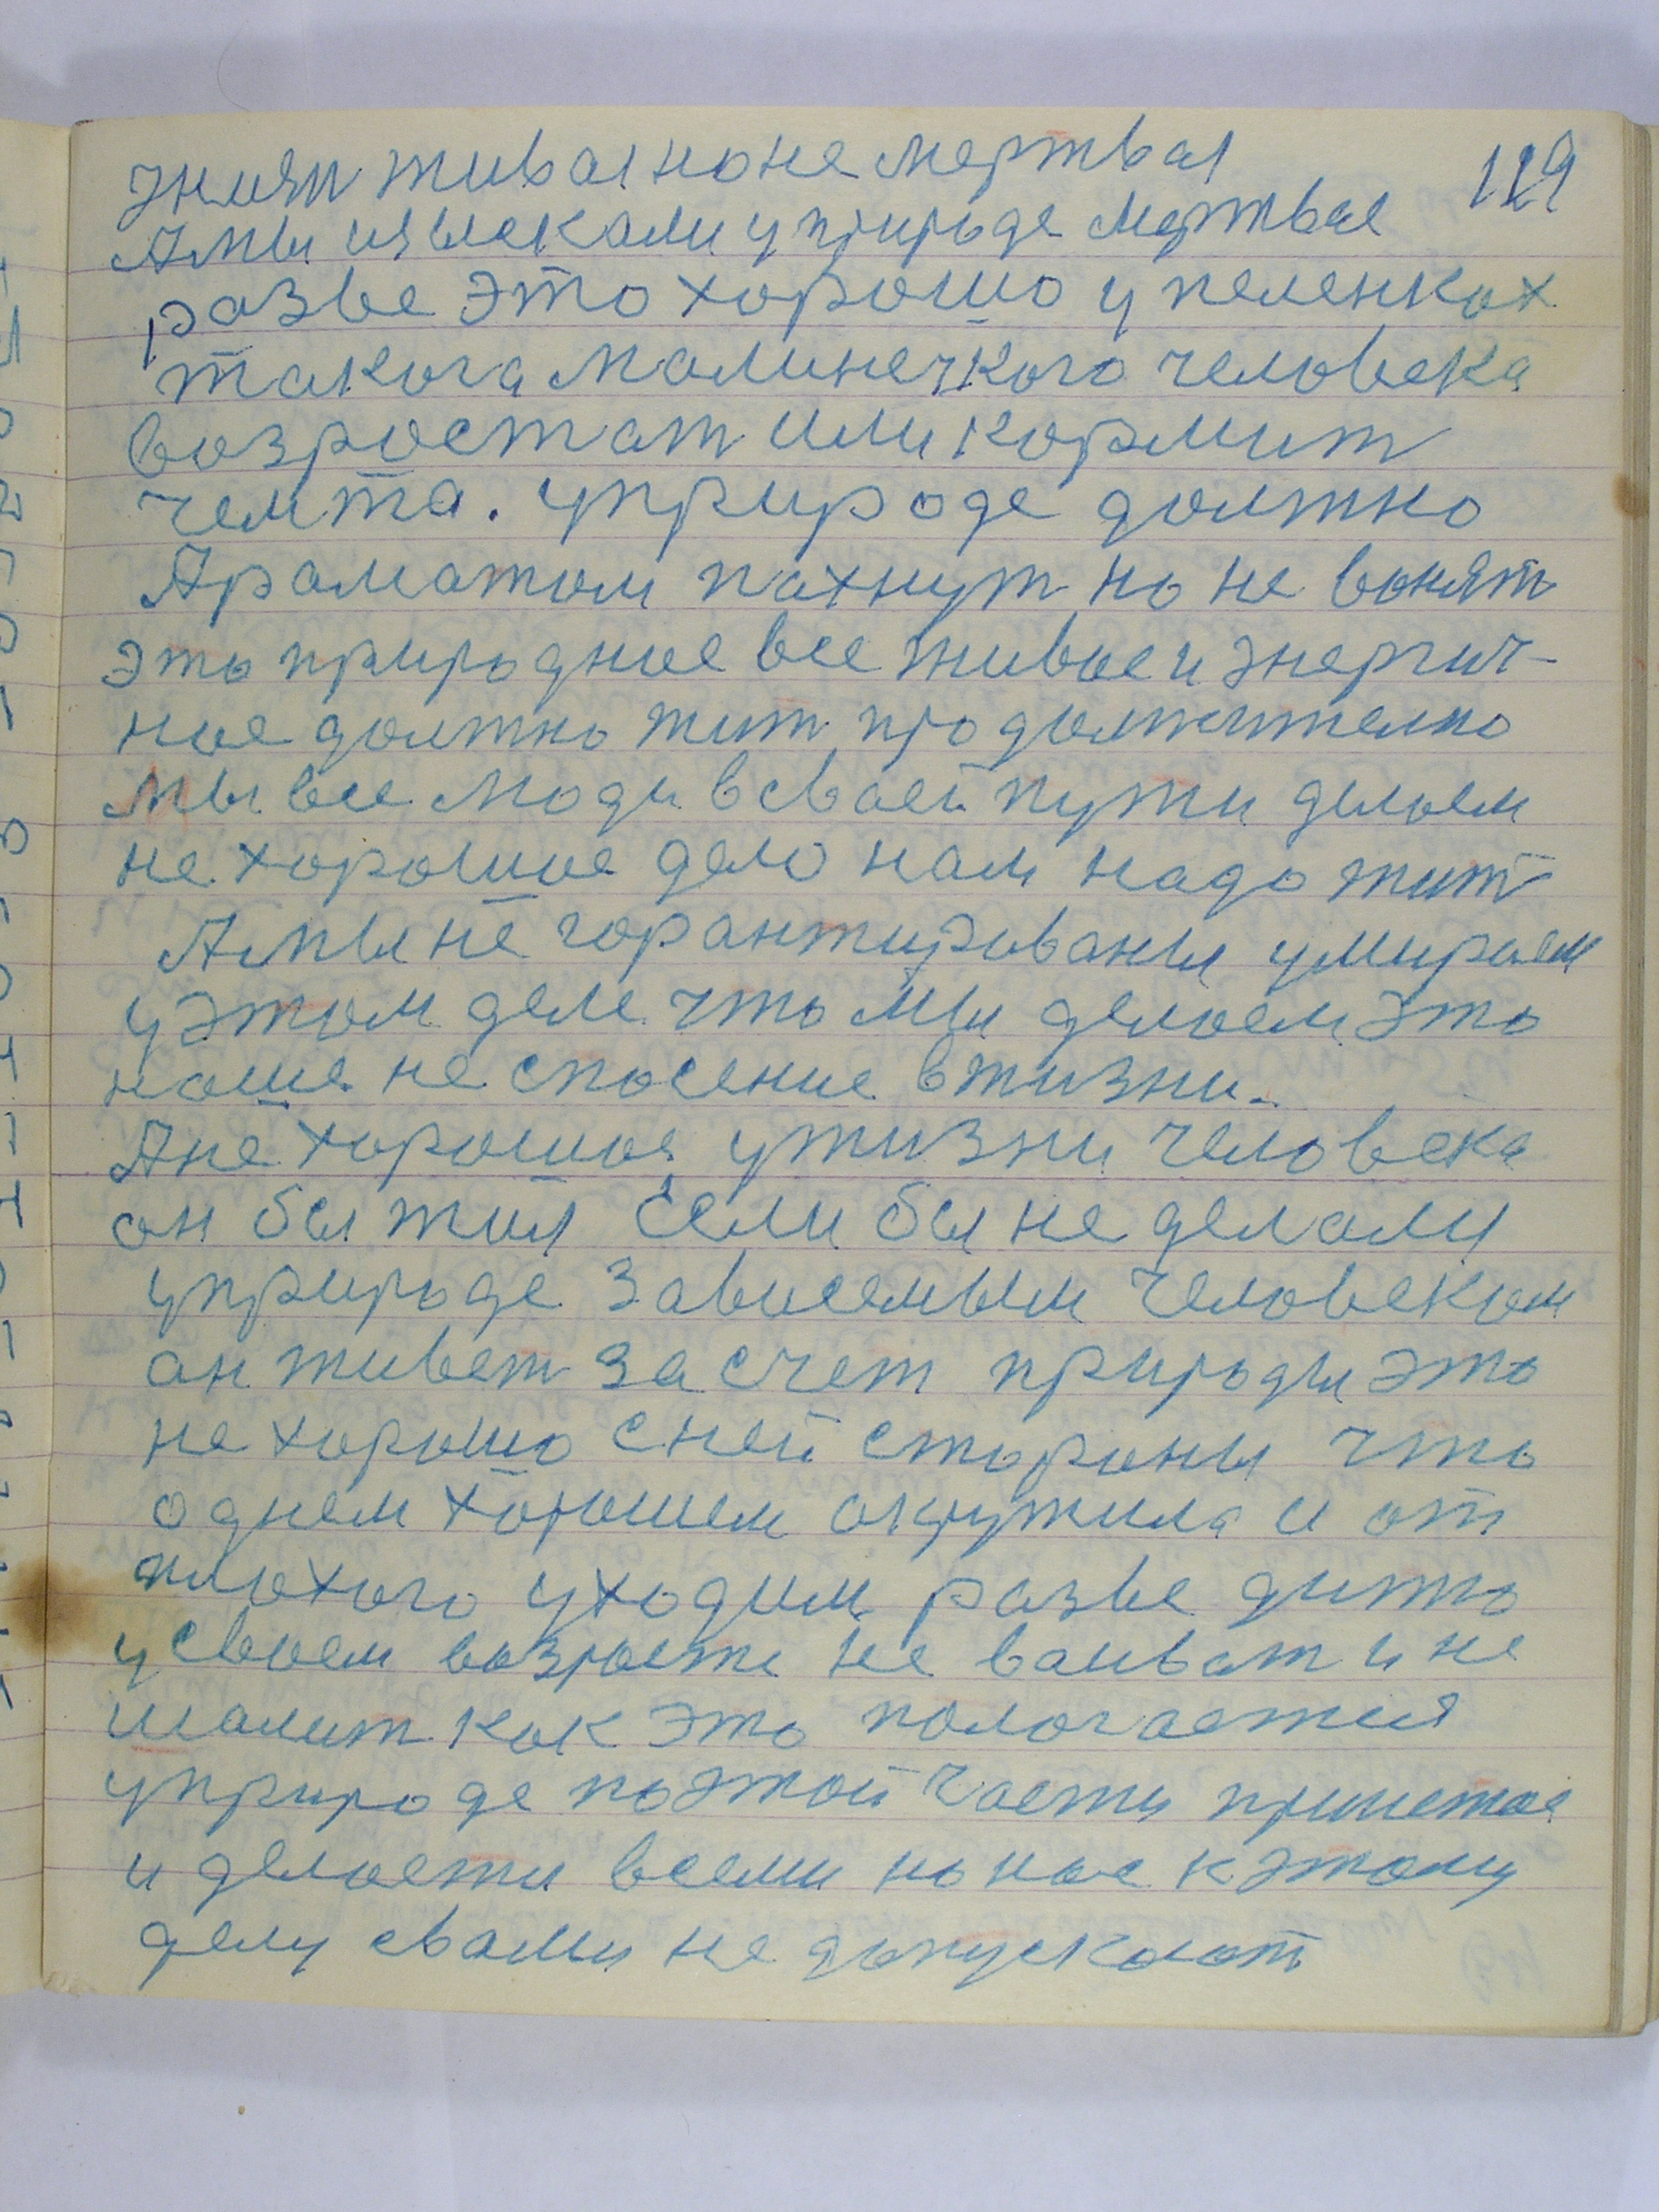 119
живая но не мертвая
А мы извлекали у природе мертвае
разве это хорошо у пеленках
такога малинечкого человека
возростат или кормит
чемта. у природе должно
Араматом пахнут но не вонят
это природное все живое и энергич-
ное должно жит продолжително
мы все люди в сваей пути делаем
не хорошое дело нам надо жит
А мы не горантированы умираем
у этом деле что мы делаем это
наше не спосение в жизни.
А не хорошое у жизни человека
он бы жил если бы не делали
у природе зависемым человеком
ан живет за счет природы это
не хорошо с ней стороны что
однем хорошем окружила и от
плохого уходим разве дитто
у своем возросте не ваиват и не
шалит как это пологается
у природе по этой части
и делоети всеми но нас к этому
делу свами не допускают